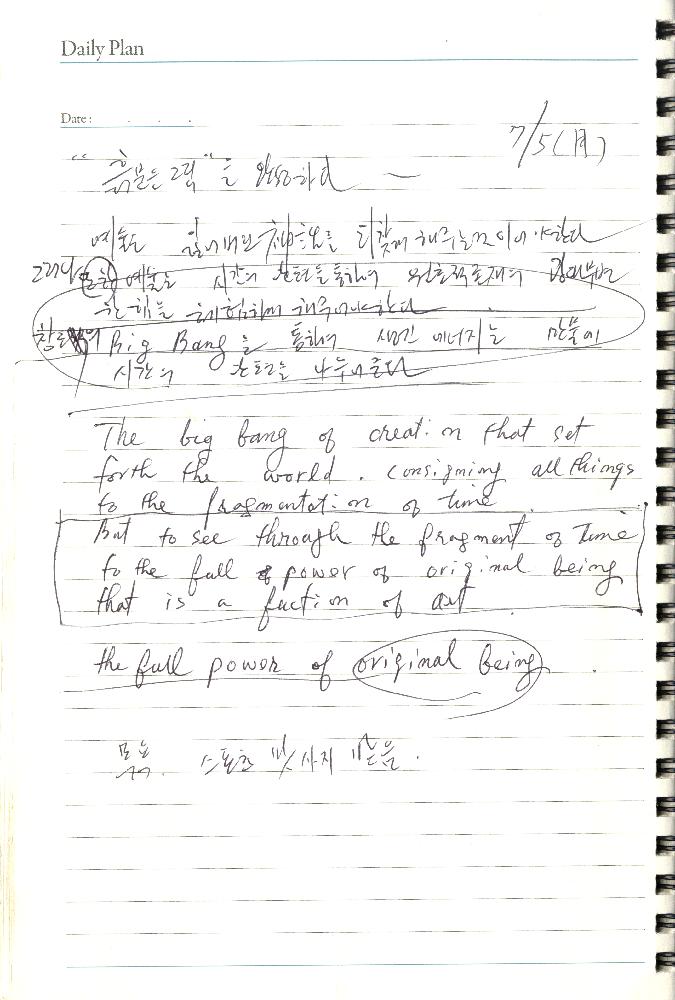 Daily Plan
Date : . . .
7/5(月)
" 흑묻은 그림 " 을 완성하다 —
예술은 잃어버린 체험을 되찾게 해주는 것이어야 한다
그러나 예술은 시간의 파편을 통하여 원초적 존재의
체험하게 해주어야 한다
창조의 Big Bang을 통하여 생긴 에너지는 만물에
시간의 파편을 나누어준다
The big bang of creation that set
forth the world . consigning all things
to the fragmentation of time .
But to see through the fragment of time
to the full power of original being
that is a fuction of art .
the full power of original being .
스포츠 않음 .